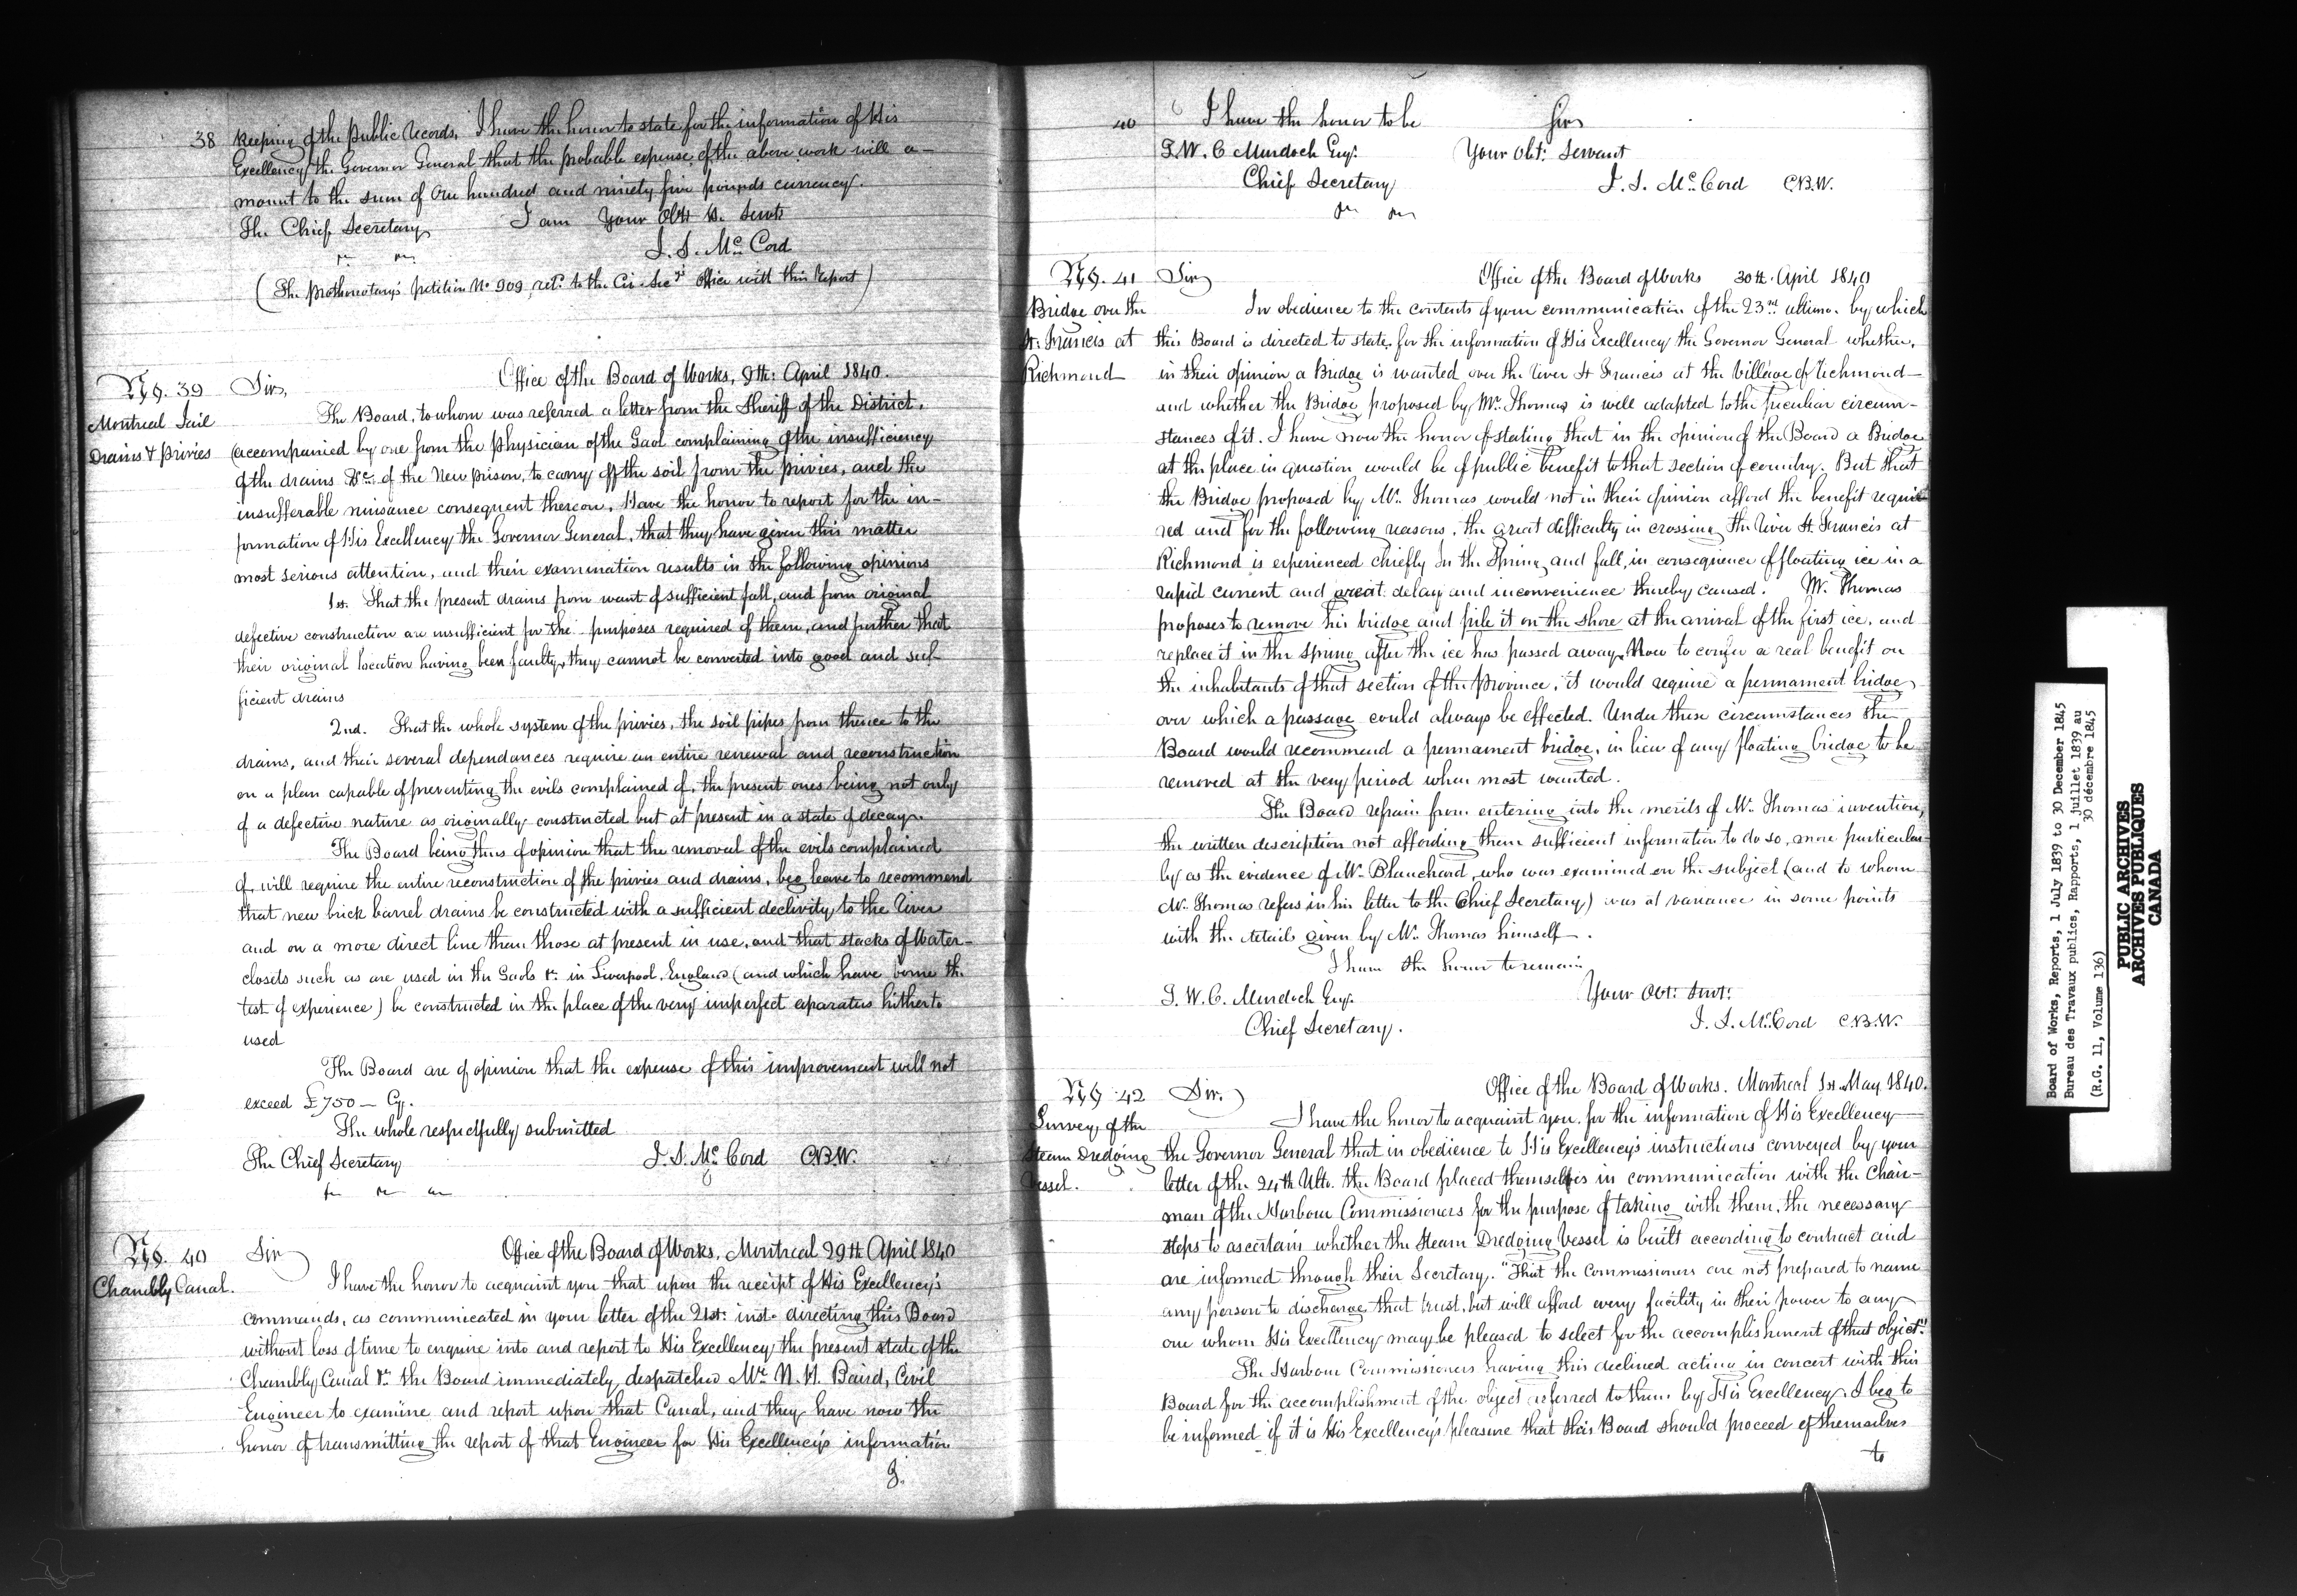 38 Keeping of the Public Records. I have the honor to state for the information of His
Excellency the Governor General that the probable expense of the above work will a-
mount to the sum of One hundred and ninety five pounds currency.
The Chief Secretary I am Your Obt H. Servt
J. S. McCord
(The Prothonotary's petition No 909 retd. to the Civ. Secy's Office with this Report)
No. 39 Sir, Office of the Board of Works, 9th: April 1840.
Montreal Jail
Drains & Privies
The Board, to whom was referred a letter from the Sheriff of the District,
(accompanied by one from the Physician of the Gaol complaining of the insufficiency
of the drains &c. of the New prison, to carry off the soil from the privies, and the
insufferable nuisance consequent thereon, Have the honor to report for the in-
formation of His Excellency the Governor General, that they have given this matter
most serious attention, and their examination results in the following opinions
1st. That the present drains from want of sufficient fall, and from original
defective construction are insufficient for the purposes required of them, and further that
their original location having been faulty, they cannot be converted into good and suf-
ficient drains
2nd. That the whole system of the privies, the soil pipes from thence to the
drains, and their several dependances require an entire renewal and reconstruction
on a plan capable of preventing the evils complained of, the present ones being not only
of a defective nature as originally constructed but at present in a state of decay.
The Board being thus of opinion that the removal of the evils complained
of, will require the entire reconstruction of the privies and drains, beg leave to recommend
that new brick barrel drains be constructed with a sufficient declivity to the River
and on a more direct line than those at present in use, and that stacks of Water-
closets such as are used in the Gaols &c. in Liverpool, England (and which have borne the
test of experience) be constructed in the place of the very imperfect aparatus hitherto
used
The Board are of opinion that the expense of this improvement will not
exceed £750 — Cy.
The whole respectfully submitted
The Chief Secretary J. S. McCord C.B.W.
No. 40 Sir Office of the Board of Works, Montreal 29th April 1840
Chambly Canal.
I have the honor to acquaint you that upon the receipt of His Excellency's
commands, as communicated in your letter of the 21st: inst. directing this Board
without loss of time to enquire into and report to His Excellency the present state of the
Chambly Canal &c. the Board immediately despatched Mr. N. H. Baird, Civil
Engineer to examine and report upon that Canal, and they have now the
honor of transmitting the report of that Engineer for His Excellency's information
40 I have the honor to be Sir
T. W. C Murdoch Esqr. Your Obt: Servant
Chief Secretary J. S. McCord C.B.W.
No. 41 Sir Office of the Board of Works 30th. April 1840
Bridge over the
St. Francis at
Richmond
In obedience to the contents of your communication of the 23rd ultimo. by which
this Board is directed to state, for the information of His Excellency the Governor General whether,
in their opinion a Bridge is wanted over the River St Francis at the Village of Richmond
and whether the Bridge proposed by Mr. Thomas is well adapted to the peculiar circum-
stances of it. I have now the honor of stating that in the opinion of the Board a Bridge
at the place in question would be of public benefit to that section of country. But that
the Bridge proposed by Mr. Thomas would not in their opinion afford the benefit requi-
red and for the following reasons, the great difficulty in crossing the River St. Francis at
Richmond is experienced chiefly In the Spring and fall, in consequence of floating ice in a
rapid current and great delay and inconvenience thereby caused. Mr. Thomas
proposes to remove his bridge and pile it on the shore at the arrival of the first ice, and
replace it in the Spring after the ice has passed away. Now to confer a real benefit on
the inhabitants of that section of the Province, it would require a permament bridge,
over which a passage could always be effected. Under these circumstances the
Board would recommend a permament bridge, in lieu of any floating bridge to be
removed at the very period when most wanted.
The Board refrain from entering into the merits of Mr. Thomas' invention,
the written description not affording them sufficient information to do so, more particular-
ly as the evidence of Mr. Blanchard, who was examined on the subject (and to whom
Mr. Thomas refers in his letter to the Chief Secretary) was at variance in some points
with the details given by Mr. Thomas himself.
I have the honor to remain
T. W. C. Murdoch Esqr. Your Obt: Servt:
Chief Secretary. J. S. McCord C.B.W.
No 42 Sir. Office of the Board of Works. Montreal 1st. May 1840.
Survey of the
Steam Dredging
Vessel.
I have the honor to acquaint you, for the information of His Excellency
the Governor General that in obedience to His Excellency's instructions conveyed by your
letter of the 24th Ulto. the Board placed themselves in communication with the Chair-
man of the Harbour Commissioners for the purpose of taking with them, the necessary
steps to ascertain whether the Steam Dredging Vessel is built according to contract and
are informed through their Secretary. "That the Commissioners are not prepared to name
any person to discharge that trust, but will afford every facility in their power to any
one whom His Excellency may be pleased to select for the accomplishment of that object."
The Harbour Commissioners having this declined acting in concert with this
Board for the accomplishment of the object referred to them by His Excellency. I beg to
be informed if it is His Excellency's pleasure that this Board should proceed of themselves
to
Board of Works, Reports, 1 July 1839 to 30 December 1845
Bureau des Travaux publics, Rapports, 1 juillet 1839 au
30 décembre 1845
(R.G. 11, Volume 136)
PUBLIC ARCHIVES
ARCHIVES PUBLIQUES
CANADA